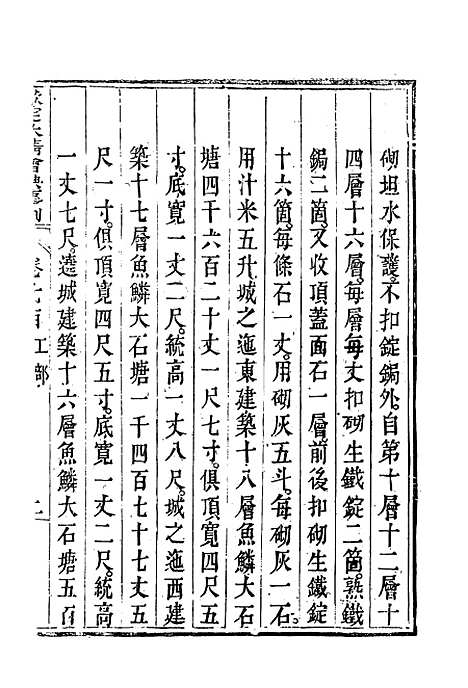 砌坦水保護。不扣錠鋦外。自第十層十二層十
四層十六層。每層每丈扣砌生鐵錠二箇。熟鐵
鋦二箇。又收頂蓋面石一層。前後扣砌生鐵錠
十六箇。每條石一丈。用砌灰五斗。每砌灰一石。
用汁米五升。城之迤東建築十八層魚鱗大石
塘四千六百二十丈一尺七寸。俱頂寬四尺五
寸。底寬一丈二尺。統高一丈八尺。城之迤西建
築十七層魚鱗大石塘一千四百七十七丈五
尺一寸。俱頂寬四尺五寸。底寬一丈二尺。統高
一丈七尺。遶城建築十六層魚鱗大石塘五百
欽定大清會典事例 卷七百 工部